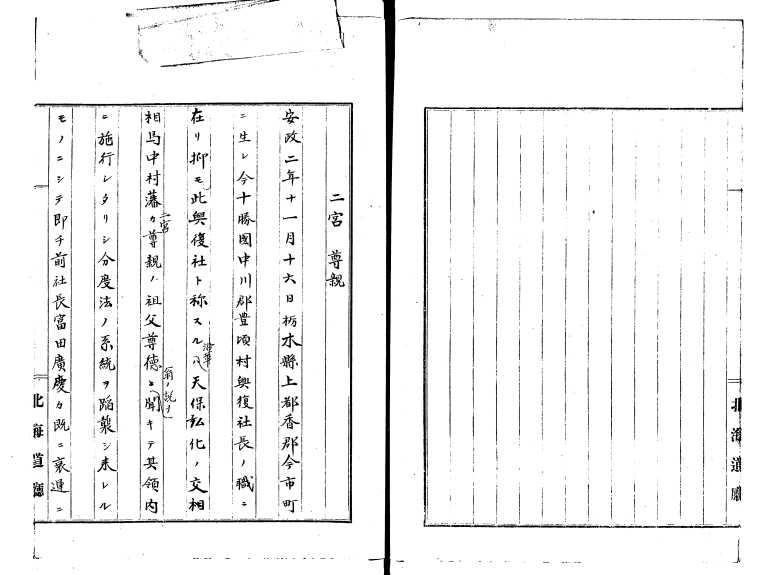 二宮 尊親
安政二年十一月十六日栃木縣上都香郡今市町
ニ生レ今十勝國中川郡豊頃村興復社長ノ職ニ
在リ抑モ此興復社ト称スルハ天保弘化ノ交相
相馬中村藩カ二宮尊親ノ祖父尊徳翁ノ説ヲ聞キテ其領内
ニ施行シタリシ分度法ノ系統ヲ蹈襲シ来レル
モノニシテ即チ前社長富田廣慶カ既ニ衰運ニ
北海道廳
北海道廳